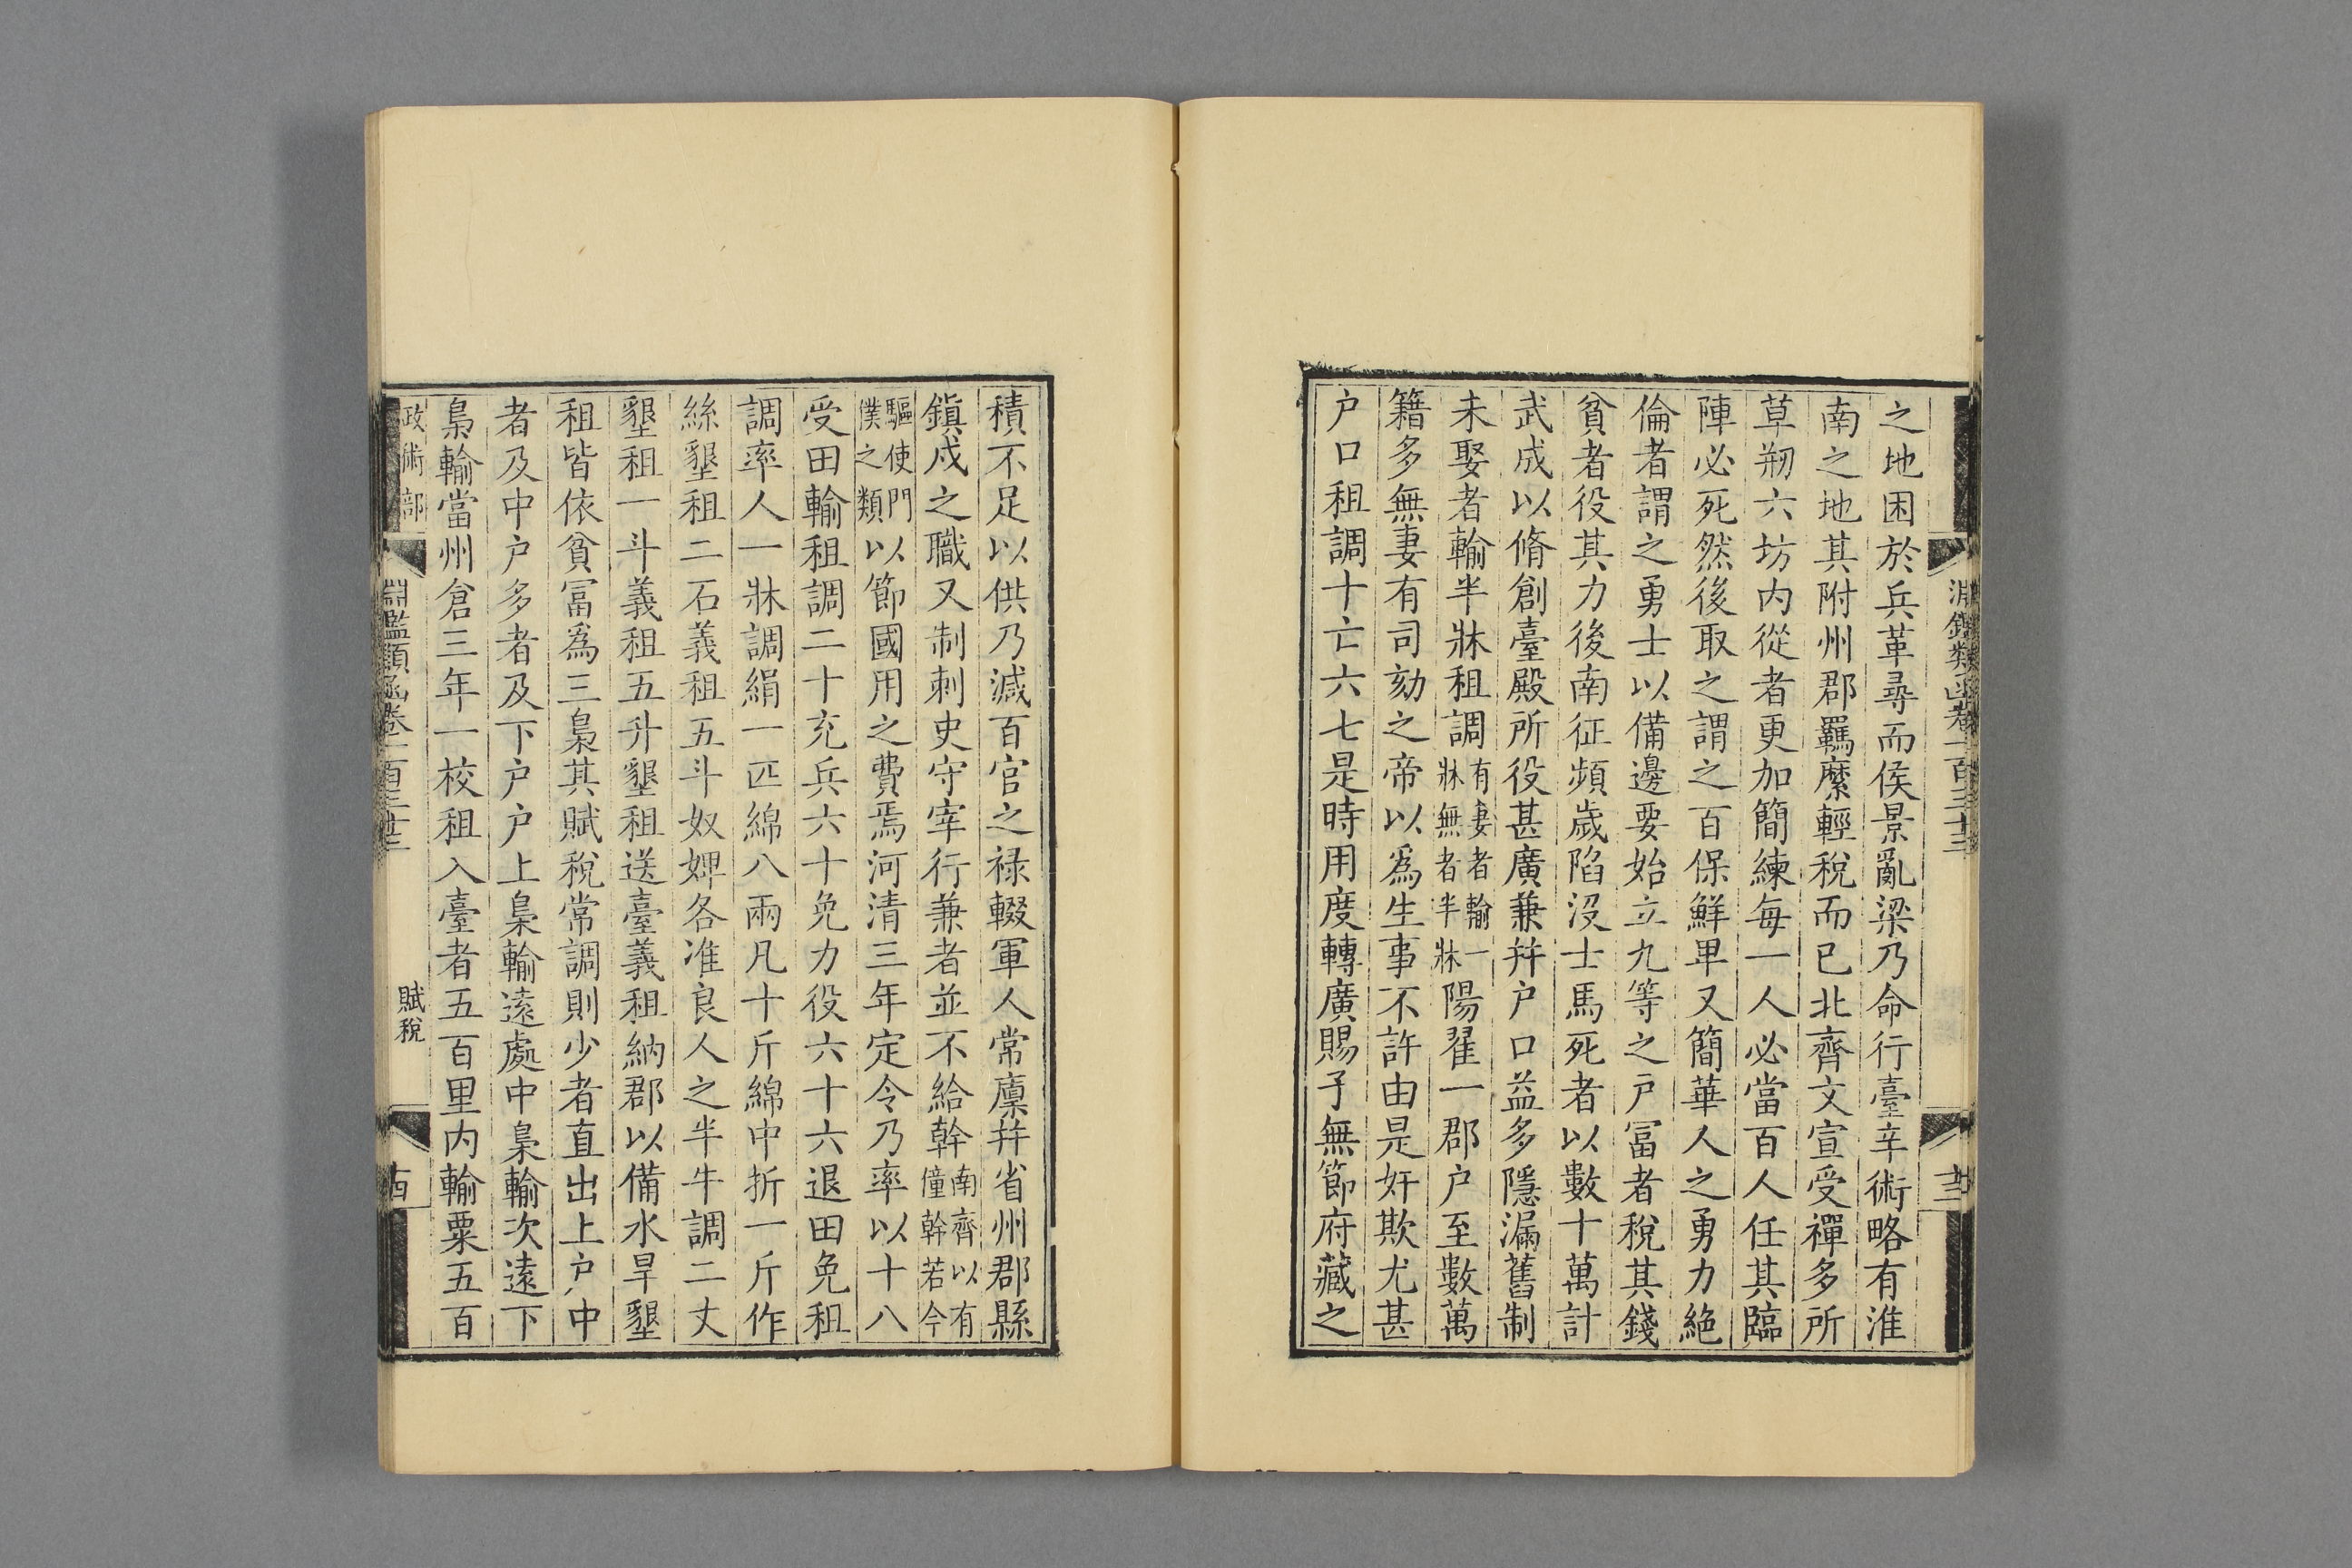 淵鑑類函卷一百三十三
之地困於兵革尋而侯景亂梁乃命行臺辛術略有淮
南之地其附州郡羈縻輕稅而已北齊文宣受禪多所
草刱六坊內從者更加簡練每一人必當百人任其臨
陣必死然後取之謂之百保鮮卑又簡華人之勇力絕
倫者謂之勇士以備邊要始立九等之戶富者稅其錢
貧者役其力後南征頻歲陷沒士馬死者以數十萬計
武成以脩創臺殿所役甚廣兼幷戶口益多隱漏舊制
未娶者輸半牀租調有妻者輸一牀無者半牀陽翟一郡戶至數萬
籍多無妻有司劾之帝以爲生事不許由是奸欺尤甚
戶口租調十亡六七是時用度轉廣賜予無節府藏之
積不足以供乃減百官之祿輟軍人常廩幷省州郡縣
鎭戍之職又制刺史守宰行兼者並不給幹南齊以有僮幹若今
驅使門僕之類以節國用之費焉河清三年定令乃率以十八
受田輸租調二十充兵六十免力役六十六退田免租
調率人一牀調絹一匹綿八兩凡十斤綿中折一斤作
絲墾租二石義租五斗奴婢各准良人之半牛調二丈
墾租一斗義租五升墾租送臺義租納郡以備水旱墾
租皆依貧富爲三梟其賦稅常調則少者直出上戶中
者及中戶多者及下戶戶上梟輸遠處中梟輸次遠下
梟輸當州倉三年一校租入臺者五百里內輸粟五百
政術部
淵鑑類函卷一百三十三
賦稅